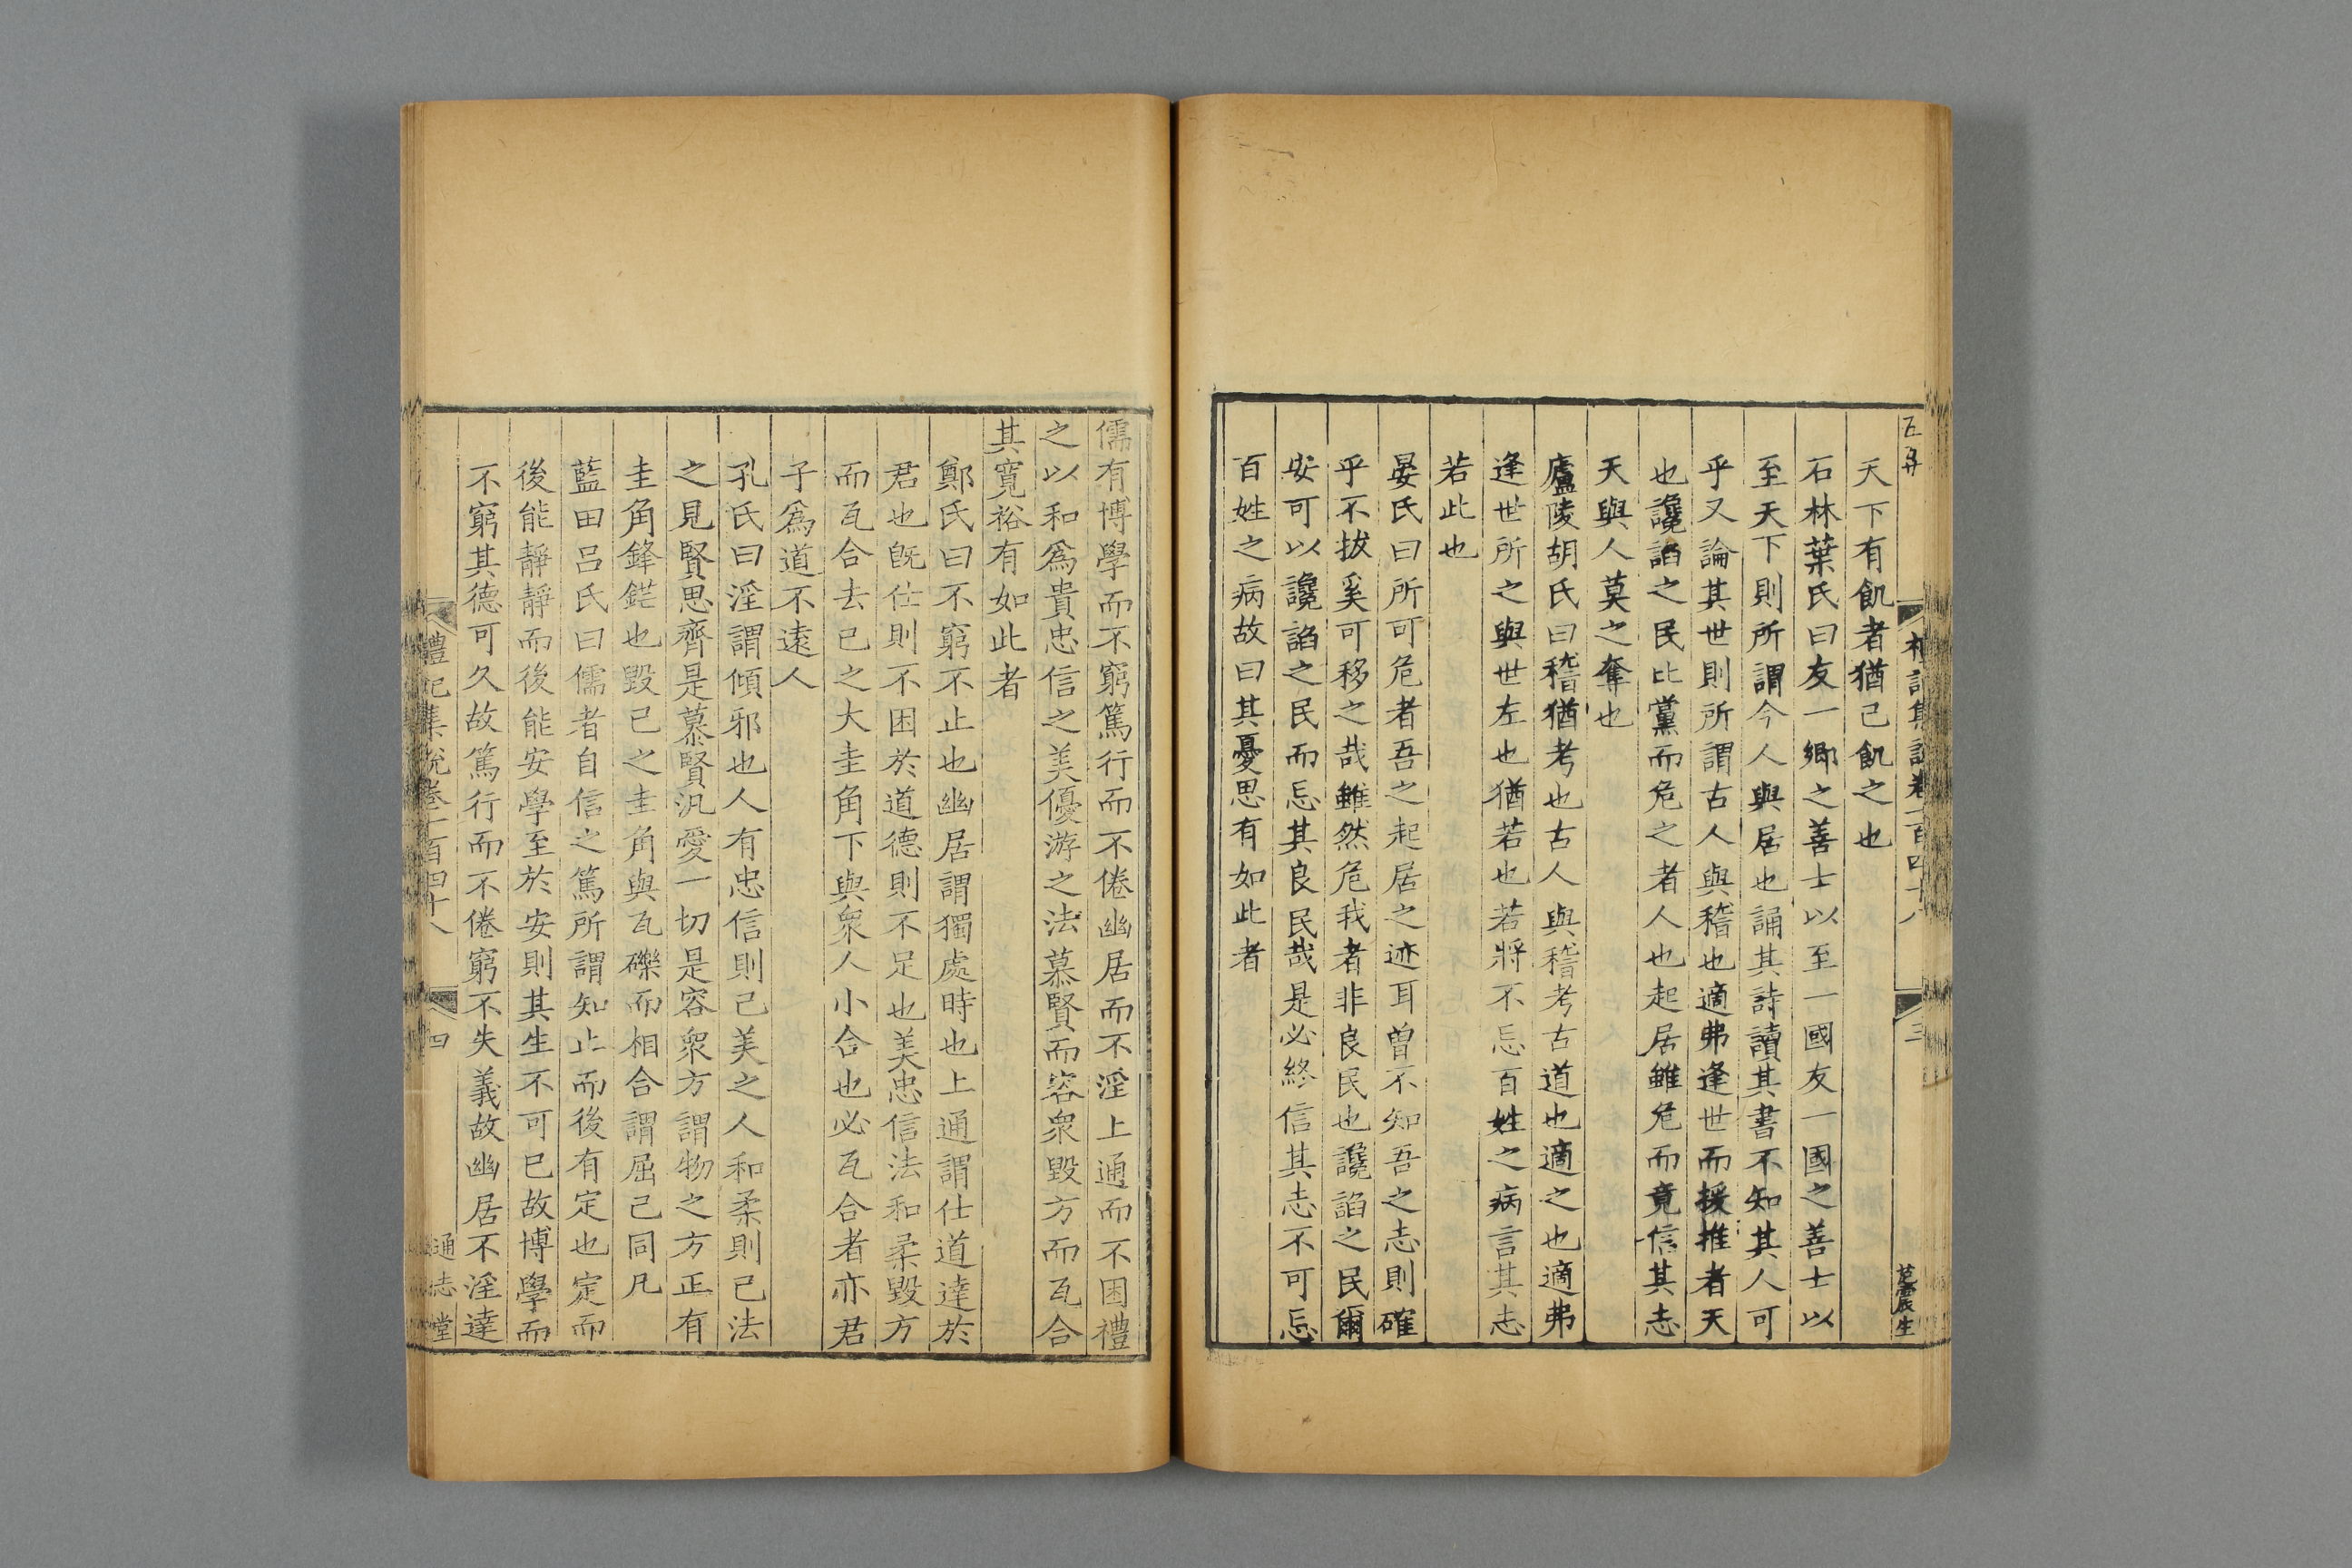 禮記集說卷一百四十八
三
天下有飢者猶己飢之也
石林葉氏曰友一鄉之善士以至一國友一國之善士以
至天下則所謂今人與居也誦其詩讀其書不知其人可
乎又論其世則所謂古人與稽也適弗逢世而援推者天
也讒諂之民比黨而危之者人也起居雖危而竟信其志
天與人莫之奪也
廬陵胡氏曰稽猶考也古人與稽考古道也適之也適弗
逢世所之與世左也猶若也若將不忘百姓之病言其志
若此也
晏氏曰所可危者吾之起居之迹耳曾不知吾之志則確
乎不拔奚可移之哉雖然危我者非良民也讒諂之民爾
安可以讒諂之民而忘其良民哉是必終信其志不可忘
百姓之病故曰其憂思有如此者
儒有博學而不窮篤行而不倦幽居而不淫上通而不困禮
之以和為貴忠信之美優游之法慕賢而容衆毀方而瓦合
其寬裕有如此者
鄭氏曰不窮不止也幽居謂獨處時也上通謂仕道達於
君也旣仕則不困於道德則不足也美忠信法和柔毀方
而瓦合去已之大圭角下與衆人小合也必瓦合者亦君
子爲道不遠人
孔氏曰淫謂傾邪也人有忠信則己美之人和柔則已法
之見賢思齊是慕賢汎愛一切是容衆方謂物之方正有
圭角鋒鋩也毀己之圭角與瓦礫而相合謂屈己同凡
藍田呂氏曰儒者自信之篤所謂知止而後有定也定而
後能靜靜而後能安學至於安則其生不可已故博學而
不窮其德可久故篤行而不倦窮不失義故幽居不淫達
禮記集說卷一百四十八
四
通志堂